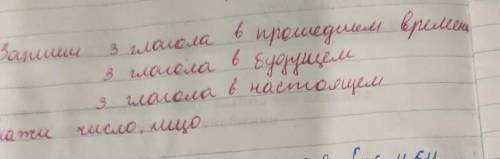 Запиши 3 глагола в прошедшем времени
3 глагола в будущем
3 глагола в настоящем
число, лицо